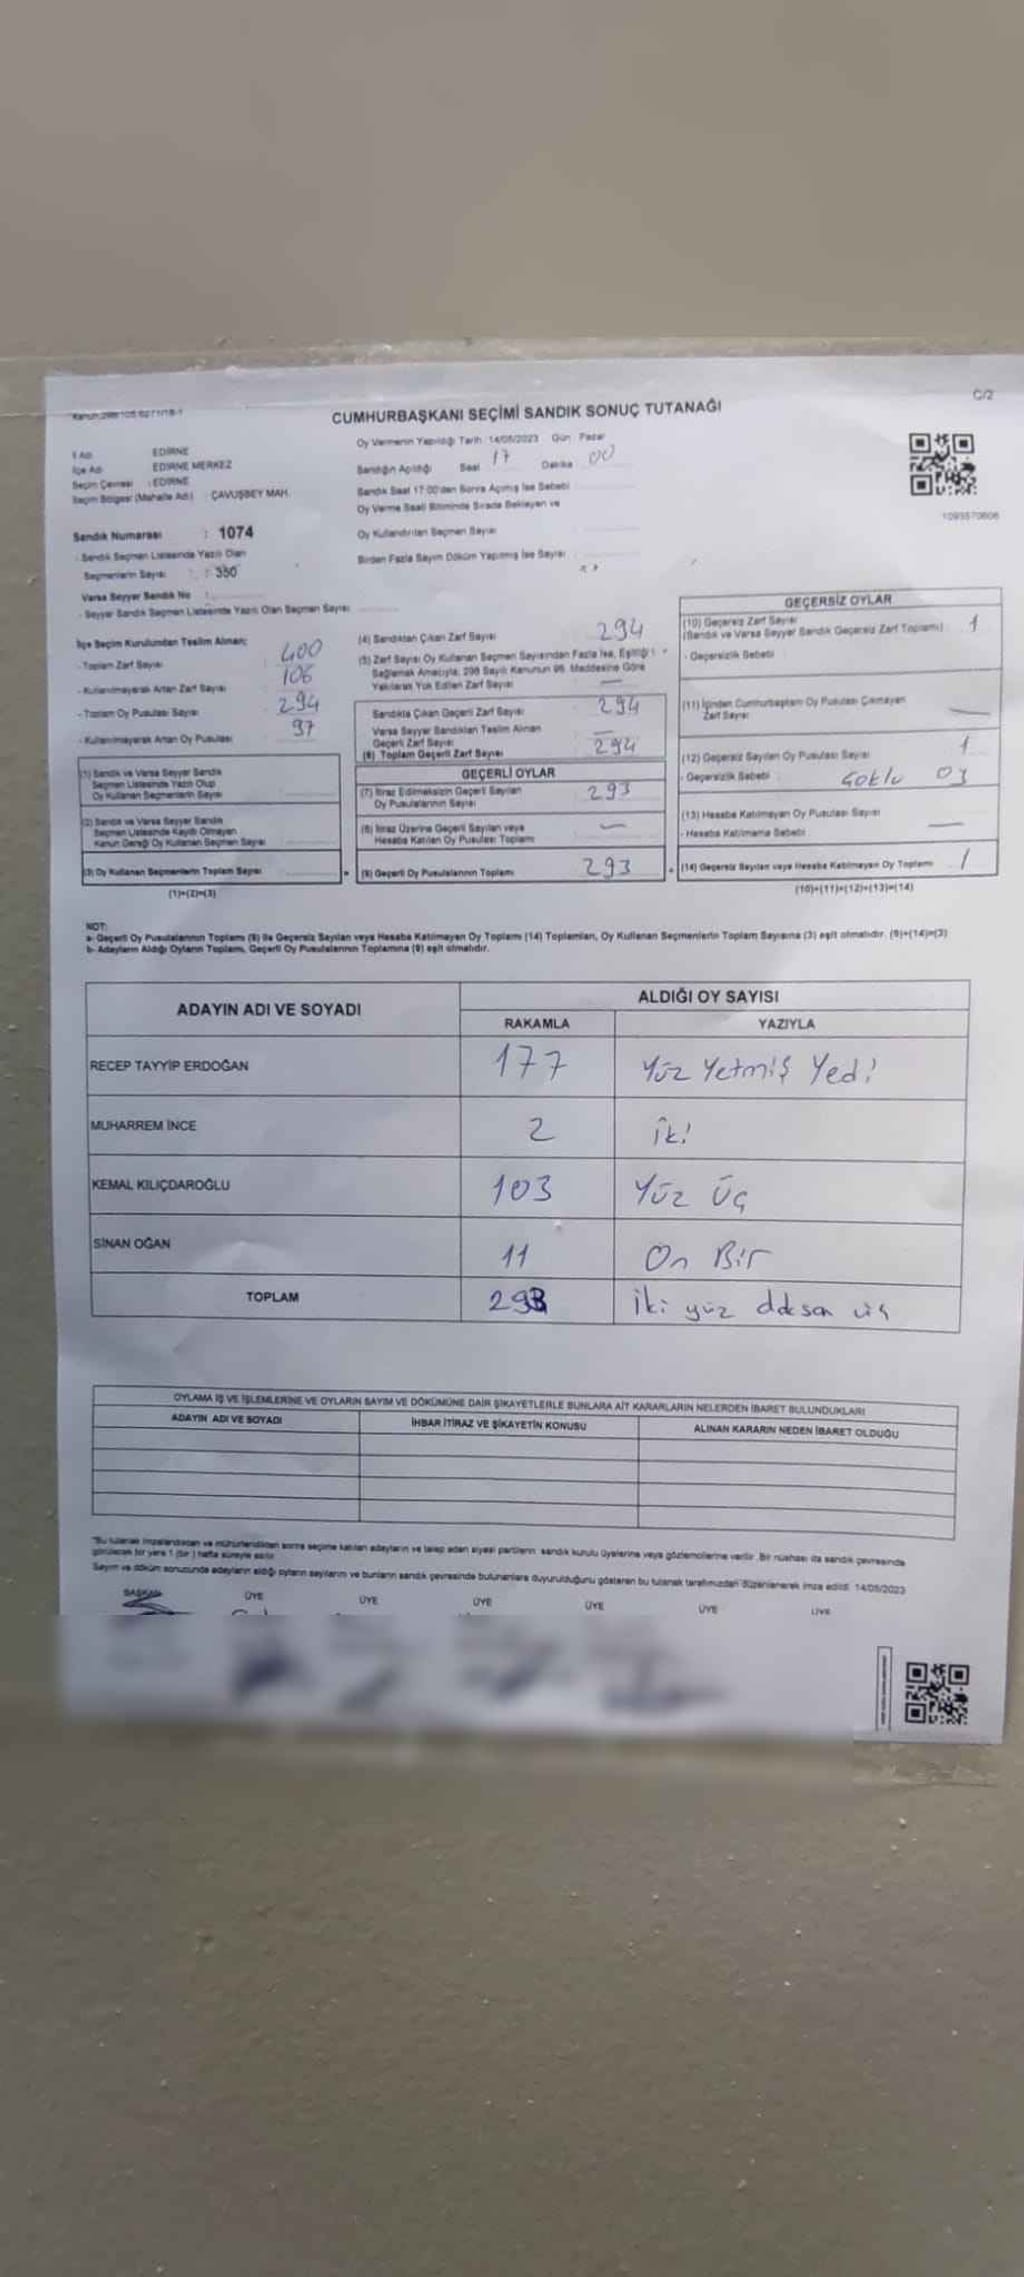 C/2
CUMHURBAŞKANI SEÇİMİ SANDIK SONUÇ TUTANAĞI
İl Adı EDİRNE
İlçe Adı EDİRNE MERKEZ
Seçim Çevresi : EDİRNE
Seçim Bölgesi (Mahalle Adı) : ÇAVUŞBEY MAH.
Oy Vermenin Yapıldığı Tarih 14/05/2023 Gün Pazar
Sandığın Açıldığı Saat 17 Dakika 00
Sandık Saat 17:00'den Sonra Açılmış İse Sebebi
Oy Verme Saati Bitiminde Sırada Bekleyen ve
Oy Kullandırılan Seçmen Sayısı
Birden Fazla Sayım Döküm Yapılmış İse Sayısı
1093570606
Sandık Numarası : 1074
- Sandık Seçmen Listesinde Yazılı Olan
Seçmenlerin Sayısı : 350
Varsa Seyyar Sandık No
- Seyyar Sandık Seçmen Listesinde Yazılı Olan Seçmen Sayısı
İlçe Seçim Kurulundan Teslim Alınan;
- Toplam Zarf Sayısı 400
- Kullanılmayarak Artan Zarf Sayısı 106
- Toplam Oy Pusulası Sayısı 294
- Kullanılmayarak Artan Oy Pusulası 97
(1) Sandık ve Varsa Seyyar Sandık
Seçmen Listesinde Yazılı Olup
Oy Kullanan Seçmenlerin Sayısı
(2) Sandık ve Varsa Seyyar Sandık
Seçmen Listesinde Kayıtlı Olmayan
Kanun Gereği Oy Kullanan Seçmen Sayısı
(3) Oy Kullanan Seçmenlerin Toplam Sayısı
(1)+(2)=(3)
(4) Sandıktan Çıkan Zarf Sayısı 294
(5) Zarf Sayısı Oy Kullanan Seçmen Sayısından Fazla İse, Eşitliği
Sağlamak Amacıyla; 298 Sayılı Kanunun 98. Maddesine Göre
Yakılarak Yok Edilen Zarf Sayısı —
Sandıkta Çıkan Geçerli Zarf Sayısı 294
Varsa Seyyar Sandıktan Teslim Alınan
Geçerli Zarf Sayısı —
(6) Toplam Geçerli Zarf Sayısı 294
GEÇERLİ OYLAR
(7) İtiraz Edilmeksizin Geçerli Sayılan
Oy Pusulalarının Sayısı 293
(8) İtiraz Üzerine Geçerli Sayılan veya
Hesaba Katılan Oy Pusulası Toplamı —
(9) Geçerli Oy Pusulalarının Toplamı 293
GEÇERSİZ OYLAR
(10) Geçersiz Zarf Sayısı
(Sandık ve Varsa Seyyar Sandık Geçersiz Zarf Toplamı) 1
- Geçersizlik Sebebi
(11) İçinden Cumhurbaşkanı Oy Pusulası Çıkmayan
Zarf Sayısı —
(12) Geçersiz Sayılan Oy Pusulası Sayısı 1
- Geçersizlik Sebebi Çoklu Oy
(13) Hesaba Katılmayan Oy Pusulası Sayısı
- Hesaba Katılmama Sebebi —
(14) Geçersiz Sayılan veya Hesaba Katılmayan Oy Toplamı 1
(10)+(11)+(12)+(13)=(14)
NOT:
a- Geçerli Oy Pusulalarının Toplamı (9) ile Geçersiz Sayılan veya Hesaba Katılmayan Oy Toplamı (14) Toplamları, Oy Kullanan Seçmenlerin Toplam Sayısına (3) eşit olmalıdır. (9)+(14)=(3)
b- Adayların Aldığı Oyların Toplamı, Geçerli Oy Pusulalarının Toplamına (9) eşit olmalıdır.
ADAYIN ADI VE SOYADI ALDIĞI OY SAYISI
RAKAMLA YAZIYLA
RECEP TAYYİP ERDOĞAN 177 Yüz Yetmiş Yedi
MUHARREM İNCE 2 İki
KEMAL KILIÇDAROĞLU 103 Yüz Üç
SİNAN OĞAN 11 On Bir
TOPLAM 293 İki yüz doksan üç
OYLAMA İŞ VE İŞLEMLERİNE VE OYLARIN SAYIM VE DÖKÜMÜNE DAİR ŞİKAYETLERLE BUNLARA AİT KARARLARIN NELERDEN İBARET BULUNDUKLARI
ADAYIN ADI VE SOYADI İHBAR İTİRAZ VE ŞİKAYETİN KONUSU ALINAN KARARIN NEDEN İBARET OLDUĞU
"Bu tutanak imzalandıktan ve mühürlendikten sonra seçime katılan adayların ve talep eden siyasi partilerin sandık kurulu üyelerine veya gözlemcilerine verilir. Bir nüshası da sandık çevresinde
görülecek bir yere 1 (bir) hafta süreyle asılır.
Sayım ve döküm sonucunda adayların aldığı oyların sayılarını ve bunların sandık çevresinde bulunanlara duyurulduğunu gösteren bu tutanak tarafımızdan düzenlenerek imza edildi. 14/05/2023
BAŞKAN ÜYE ÜYE ÜYE ÜYE ÜYE ÜYE